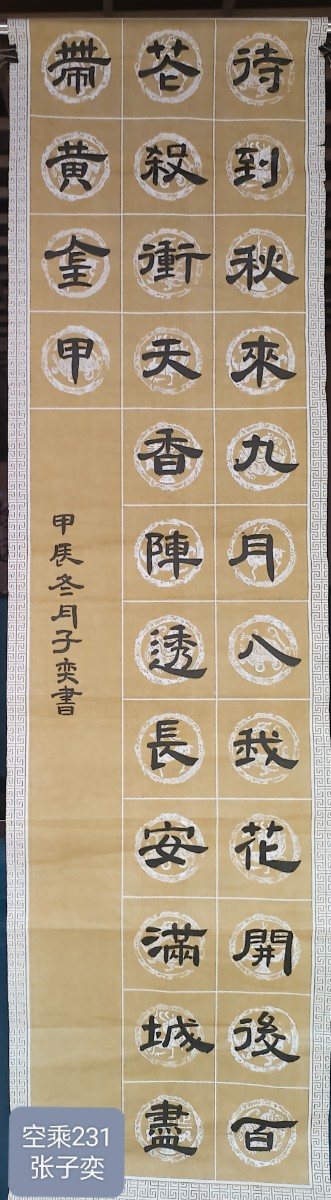 待到秋來九月八我花開後百
花殺衝天香陣透長安滿城盡
帶黄金甲
甲辰冬月子奕書
空乘231
张子奕